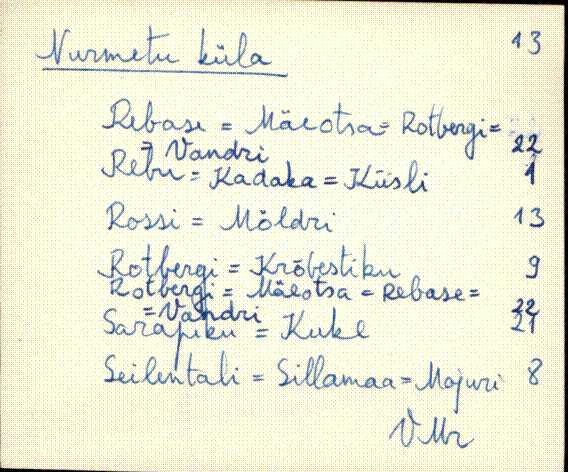 Nurmetu küla 13
Rebase = Mäeotsa = Rotbergi =
= Vandri 22
Rebu = Kadaka = Küisli 1
Rossi = Möldri 13
Rotbergi = Krõbestiku 9
Rotbergi = Mäeotsa = Rebase =
= Vandri 22
Sarapiku = Kuke 21
Seilentali = Sillamaa = Majuri 8
VMr